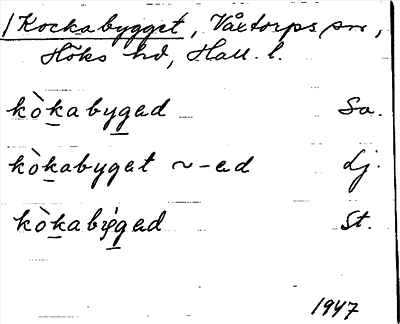 /Kockabygget, Våxtorps sn,
Höks hd, Hall. l.
kòkabygad Sa.
kòkabygat ~-ad Lj.
kòkabýgad St.
1947